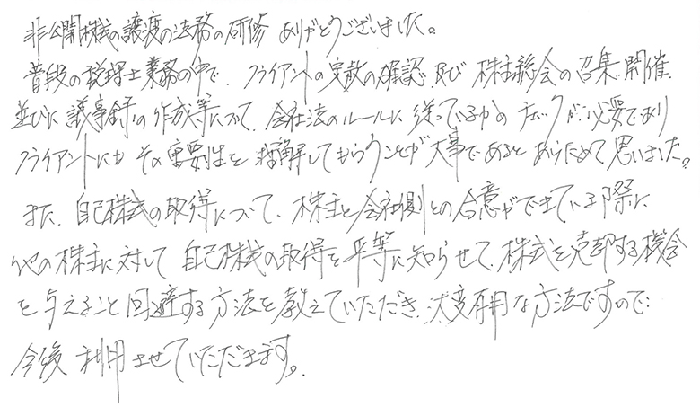 非公開株式の譲渡の法務の研修 ありがとうございました。
普段の税理士業務の中で、クライアントの定款の確認、及び 株主総会の召集、開催
並びに議事録の作成等について、会社法のルールに従っているかのチェックが必要であり
クライアントにも その重要性を 理解してもらうことが大事であると あらためて思いました。
また、自己株式の取得について、株主と会社側との合意ができている際に
他の株主に対して 自己株式の取得を平等に知らせて、株式を売却する機会
を与えること 回避する方法を教えていただき、大変有用な方法ですので、
今後 利用させていただきます。